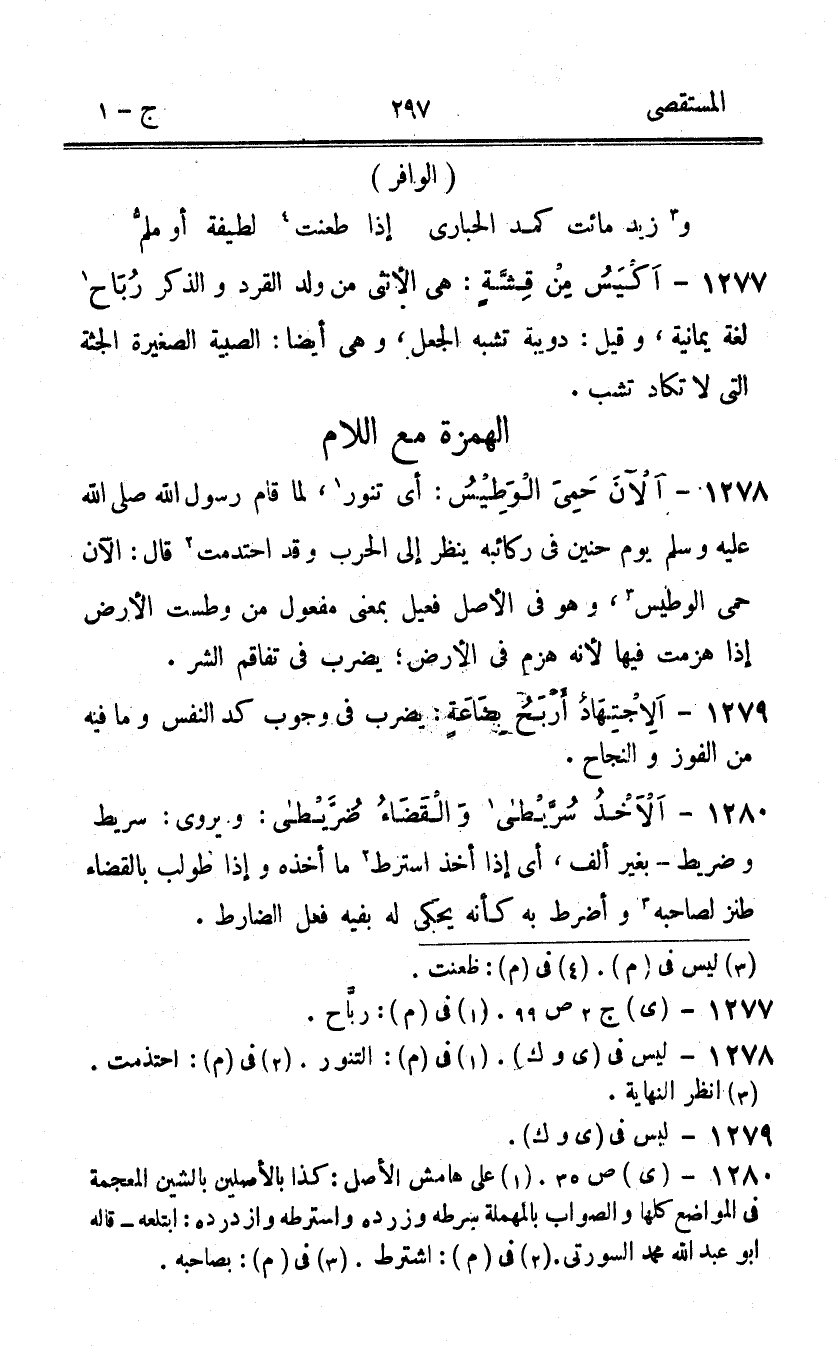 المستقصى ٢٩٧ ج – ١
( الوافر )
و٣ زيد مائت كمد الحبارى إذا طعنت٤ لطيفة أو ملم٥
١٢٧٧ – اَكْيَسُ مِنْ قِشَّةٍ : هى الأنثى من ولد القرد و الذكر رُبَاح١
لغة يمانية ، و قيل : دويبة تشبه الجعل ، و هى أيضا : الصبية الصغيرة الجثة
التى لا تكاد تشب .
الهمزة مع اللام
١٢٧٨ – اَلْآنَ حَمِىَ الْوَطِيْسُ : أى تنور١ ، لما قام رسول الله صلى الله
عليه و سلم يوم حنين فى ركائبه ينظر إلى الحرب و قد احتدمت٢ قال : الآن
حمى الوطيس٣ ، و هو فى الأصل فعيل بمعنى مفعول من وطست الأرض
إذا هزمت فيها لأنه هزم فى الأرض ؛ يضرب فى تفاقم الشر .
١٢٧٩ – اَلِاجْتِهَادُ أَرْبَحُ بِضَاعَةٍ : يضرب فى وجوب كد النفس و ما فيه
من الفوز و النجاح .
١٢٨٠ – اَلْاَخْذُ سُرَّيْطٰى١ وَالْقَضَاءُ ضُرَّيْطٰى : و يروى : سريط
و ضريط – بغير ألف ، أى إذا أخذ استرط٢ ما أخذه و إذا طولب بالقضاء
طنز لصاحبه٣ و أضرط به كأنه يحكى له بفيه فعل الضارط .
(٣) ليس فى (م) . (٤) فى (م) : ظعنت .
١٢٧٧ – (ى) ج ٢ ص ٩٩ . (١) فى (م) : ربَّاح .
١٢٧٨ – ليس فى (ى و ك) . (١) فى (م) : التنور . (٢) فى (م) : احتذمت .
(٣) انظر النهاية .
١٢٧٩ – ليس فى (ى و ك) .
١٢٨٠ – (ى) ص ٣٥ . (١) على هامش الأصل : كذا بالأصلين بالشين المعجمة
فى المواضع كلها و الصواب بالمهملة سرطه وزرده واسترطه وازدرده : ابتلعه – قاله
ابو عبد الله محمد السورتى . (٢) فى (م) : اشترط . (٣) فى (م) : بصاحبه .